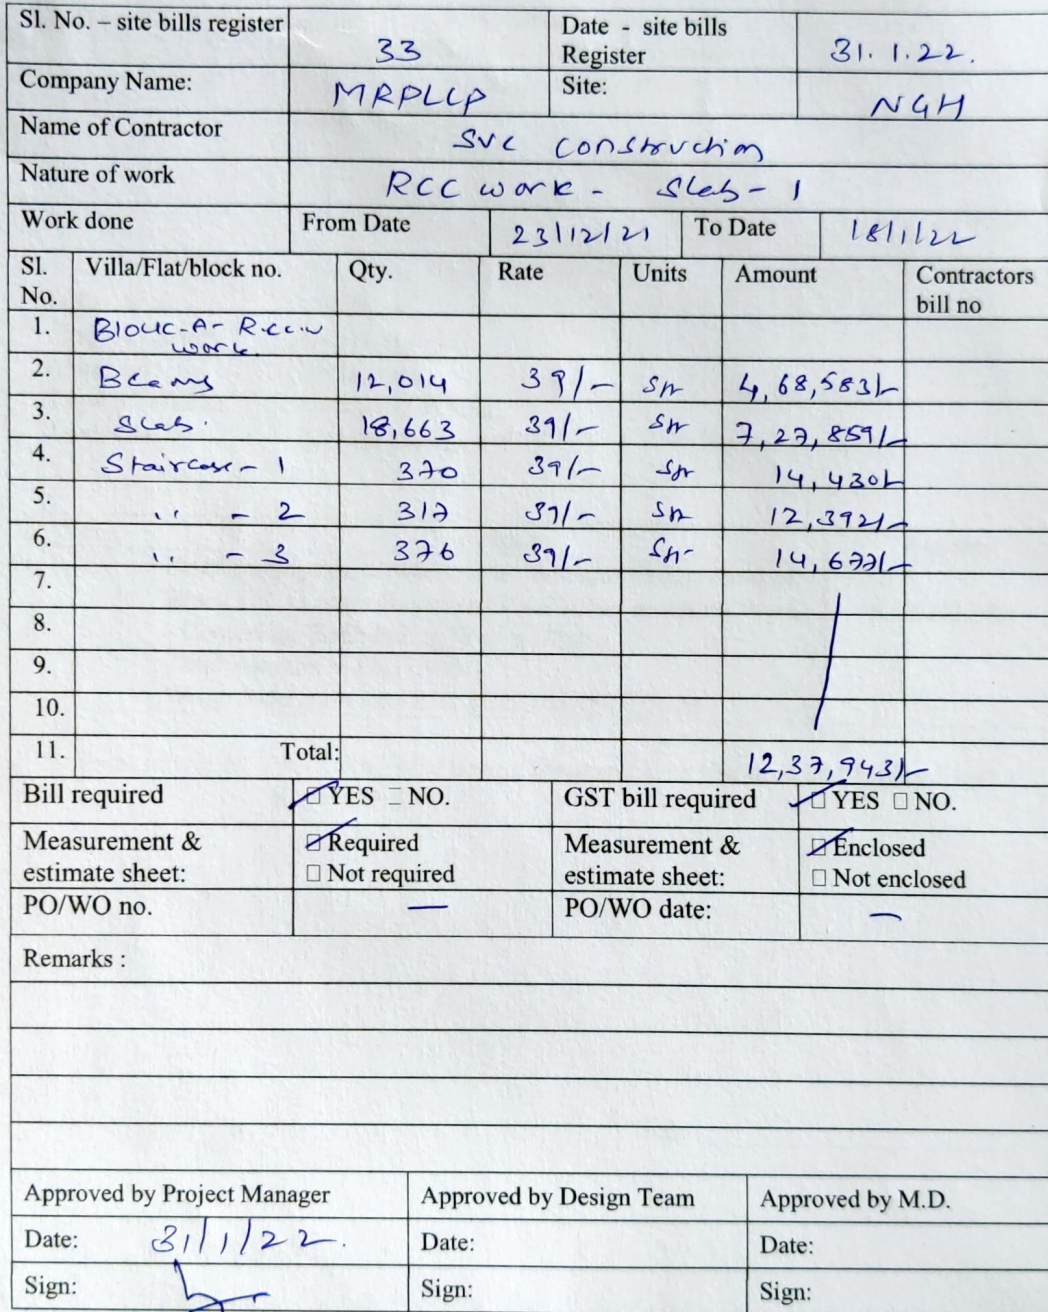 Sl. No. – site bills register 33 Date - site bills Register 31.1.22.
Company Name: MRPLLP Site: NGH
Name of Contractor SVC Construction
Nature of work RCC work - Slab - 1
Work done From Date 23/12/21 To Date 18/1/22
Sl. No. Villa/Flat/block no. Qty. Rate Units Amount Contractors bill no
1. Block-A- R.c.c.
work.
2. Beams 12,014 39/- Sft 4,68,583/-
3. Slab. 18,663 39/- Sft 7,27,859/-
4. Staircase - 1 370 39/- Sft 14,430/-
5. ,, - 2 317 39/- Sft 12,392/-
6. ,, - 3 376 39/- Sft 14,677/-
7.
8.
9.
10.
11. Total: 12,37,943/-
Bill required ☑ YES □ NO. GST bill required ☑ YES □ NO.
Measurement & ☑ Required Measurement & ☑ Enclosed
estimate sheet: □ Not required estimate sheet: □ Not enclosed
PO/WO no. — PO/WO date: —
Remarks :
Approved by Project Manager Approved by Design Team Approved by M.D.
Date: 31/1/22. Date: Date:
Sign: Sign: Sign: